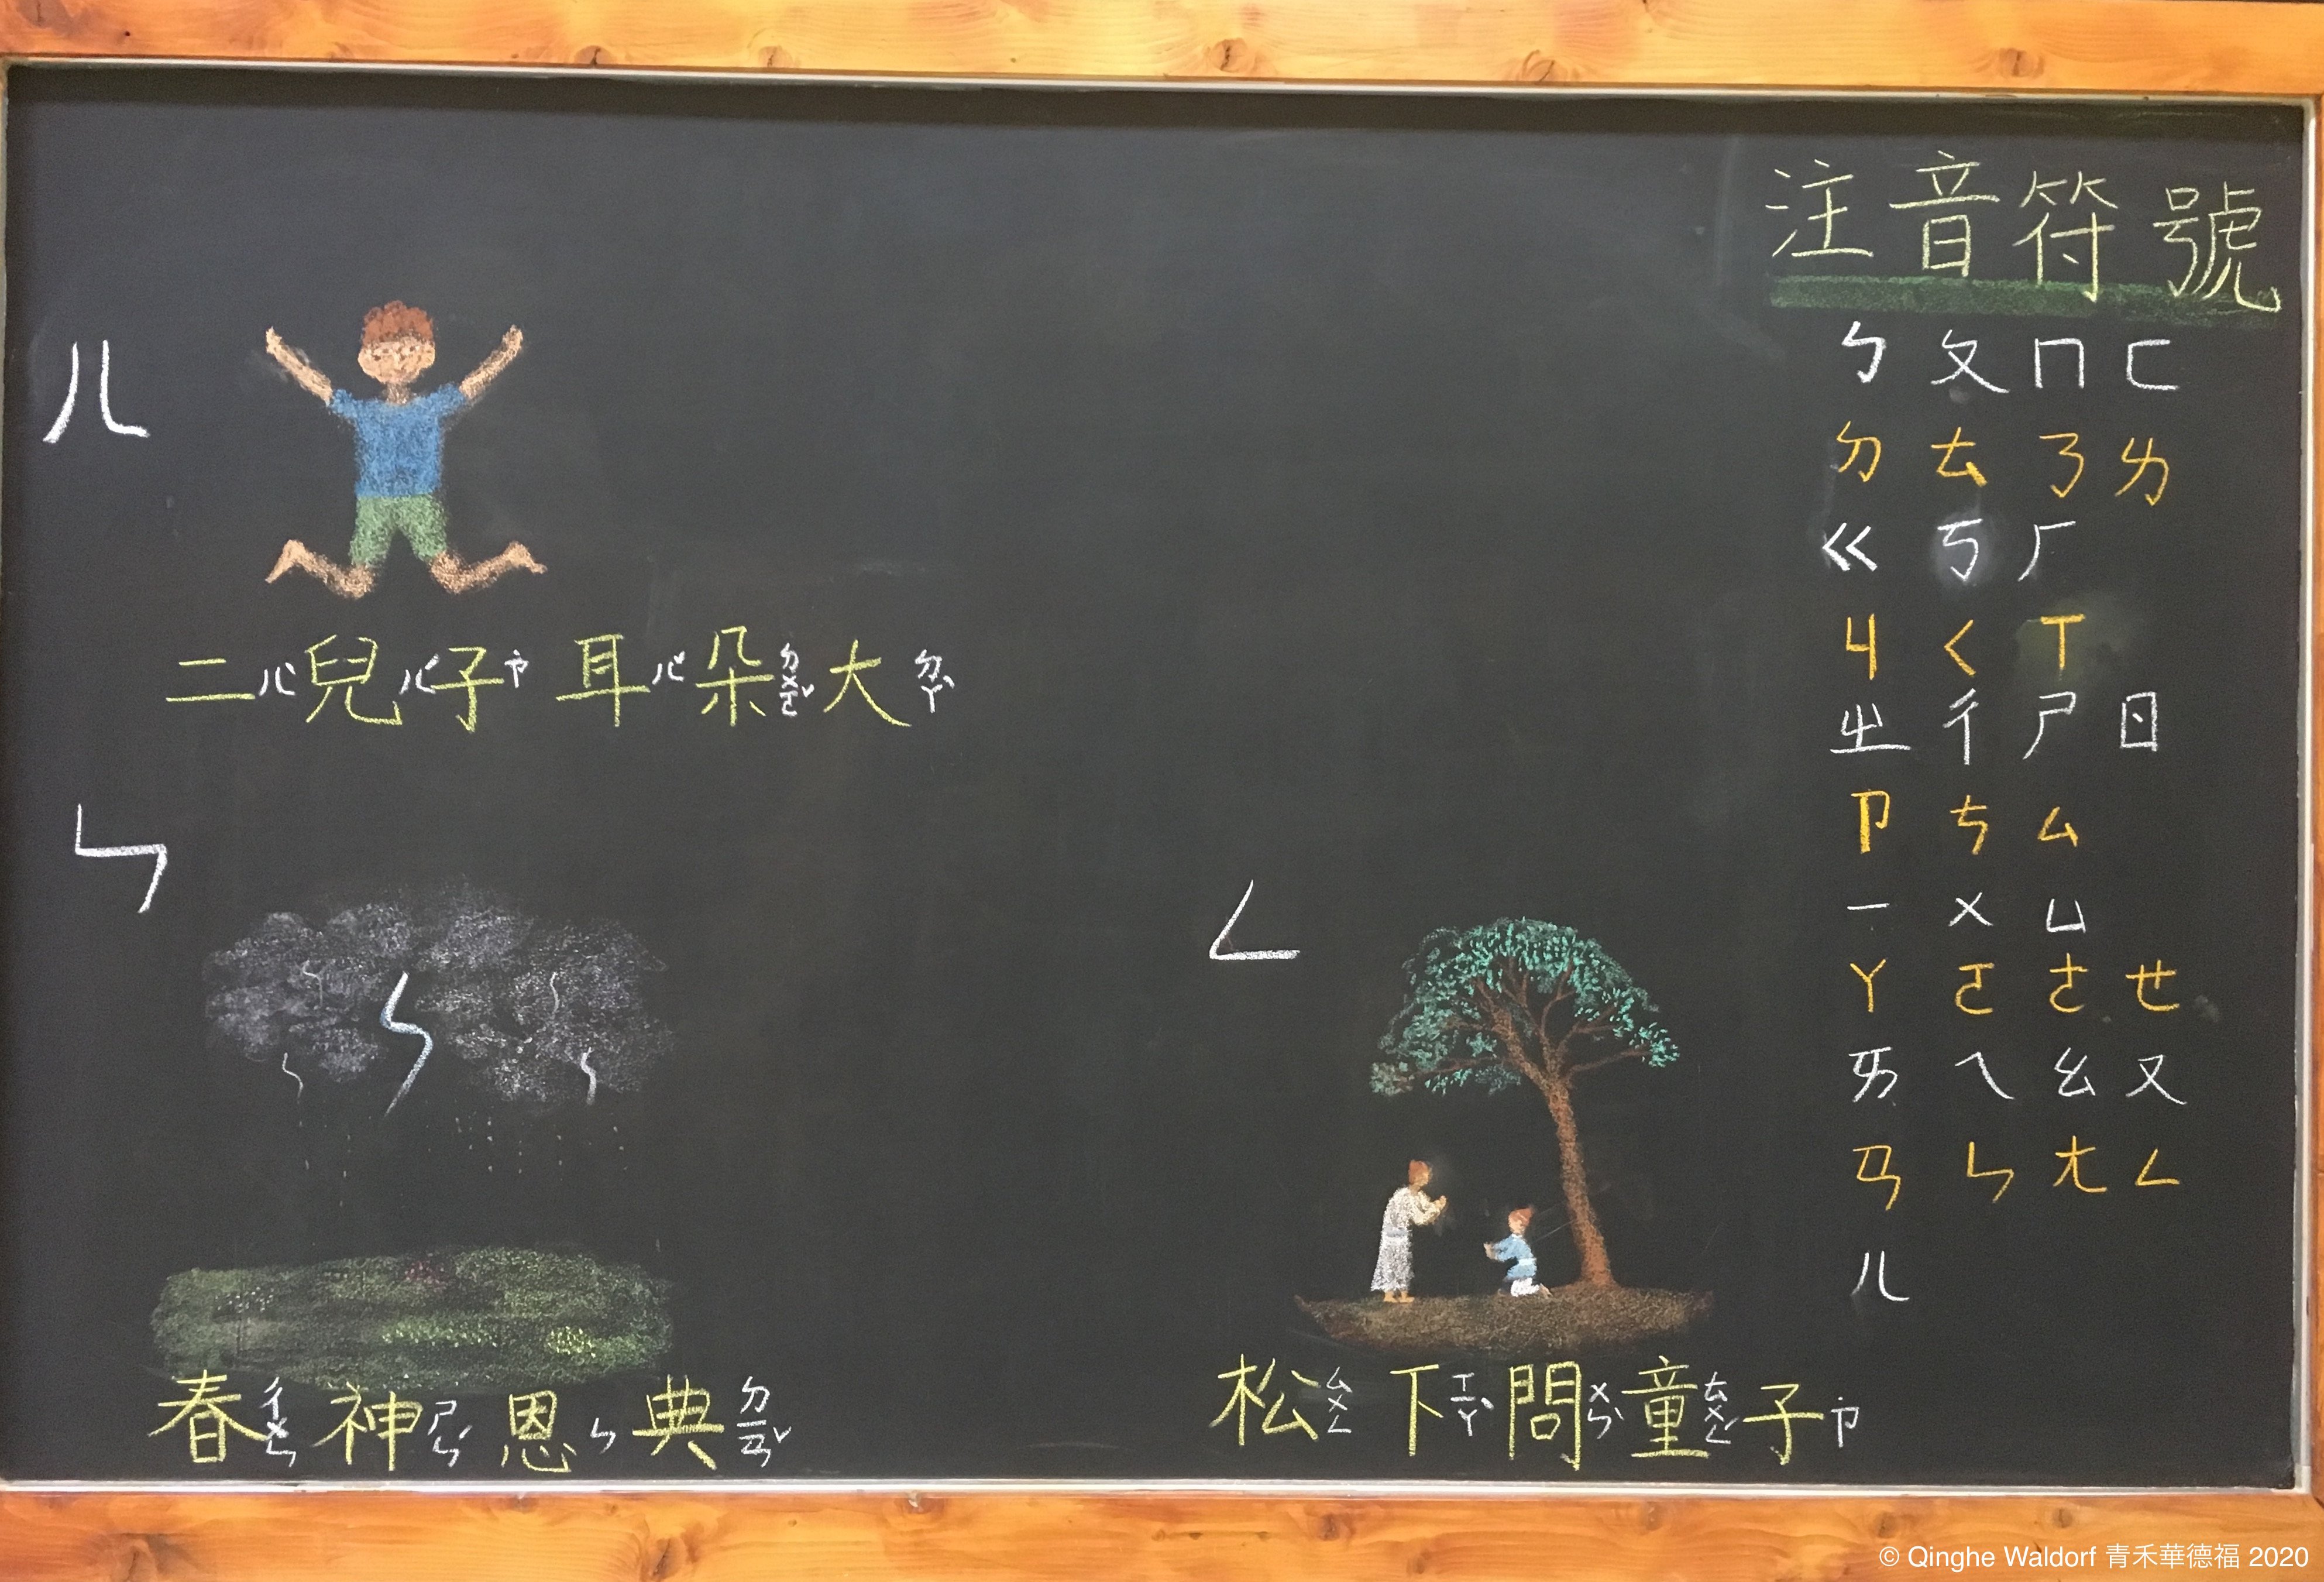 注音符號
ㄅ ㄆ ㄇ ㄈ
ㄉ ㄊ ㄋ ㄌ
ㄍ ㄎ ㄏ
ㄐ ㄑ ㄒ
ㄓ ㄔ ㄕ ㄖ
ㄗ ㄘ ㄙ
ㄧ ㄨ ㄩ
ㄚ ㄛ ㄜ ㄝ
ㄞ ㄟ ㄠ ㄡ
ㄢ ㄣ ㄤ ㄥ
ㄦ
ㄦ
二ㄦˋ兒ㄦˊ子ㄗ˙ 耳ㄦˇ朵ㄉㄨㄛˇ大ㄉㄚˋ
ㄣ
春ㄔㄨㄣ神ㄕㄣˊ恩ㄣ典ㄉㄧㄢˇ
ㄥ
松ㄙㄨㄥ下ㄒㄧㄚˋ問ㄨㄣˋ童ㄊㄨㄥˊ子ㄗˇ
© Qinghe Waldorf 青禾華德福 2020